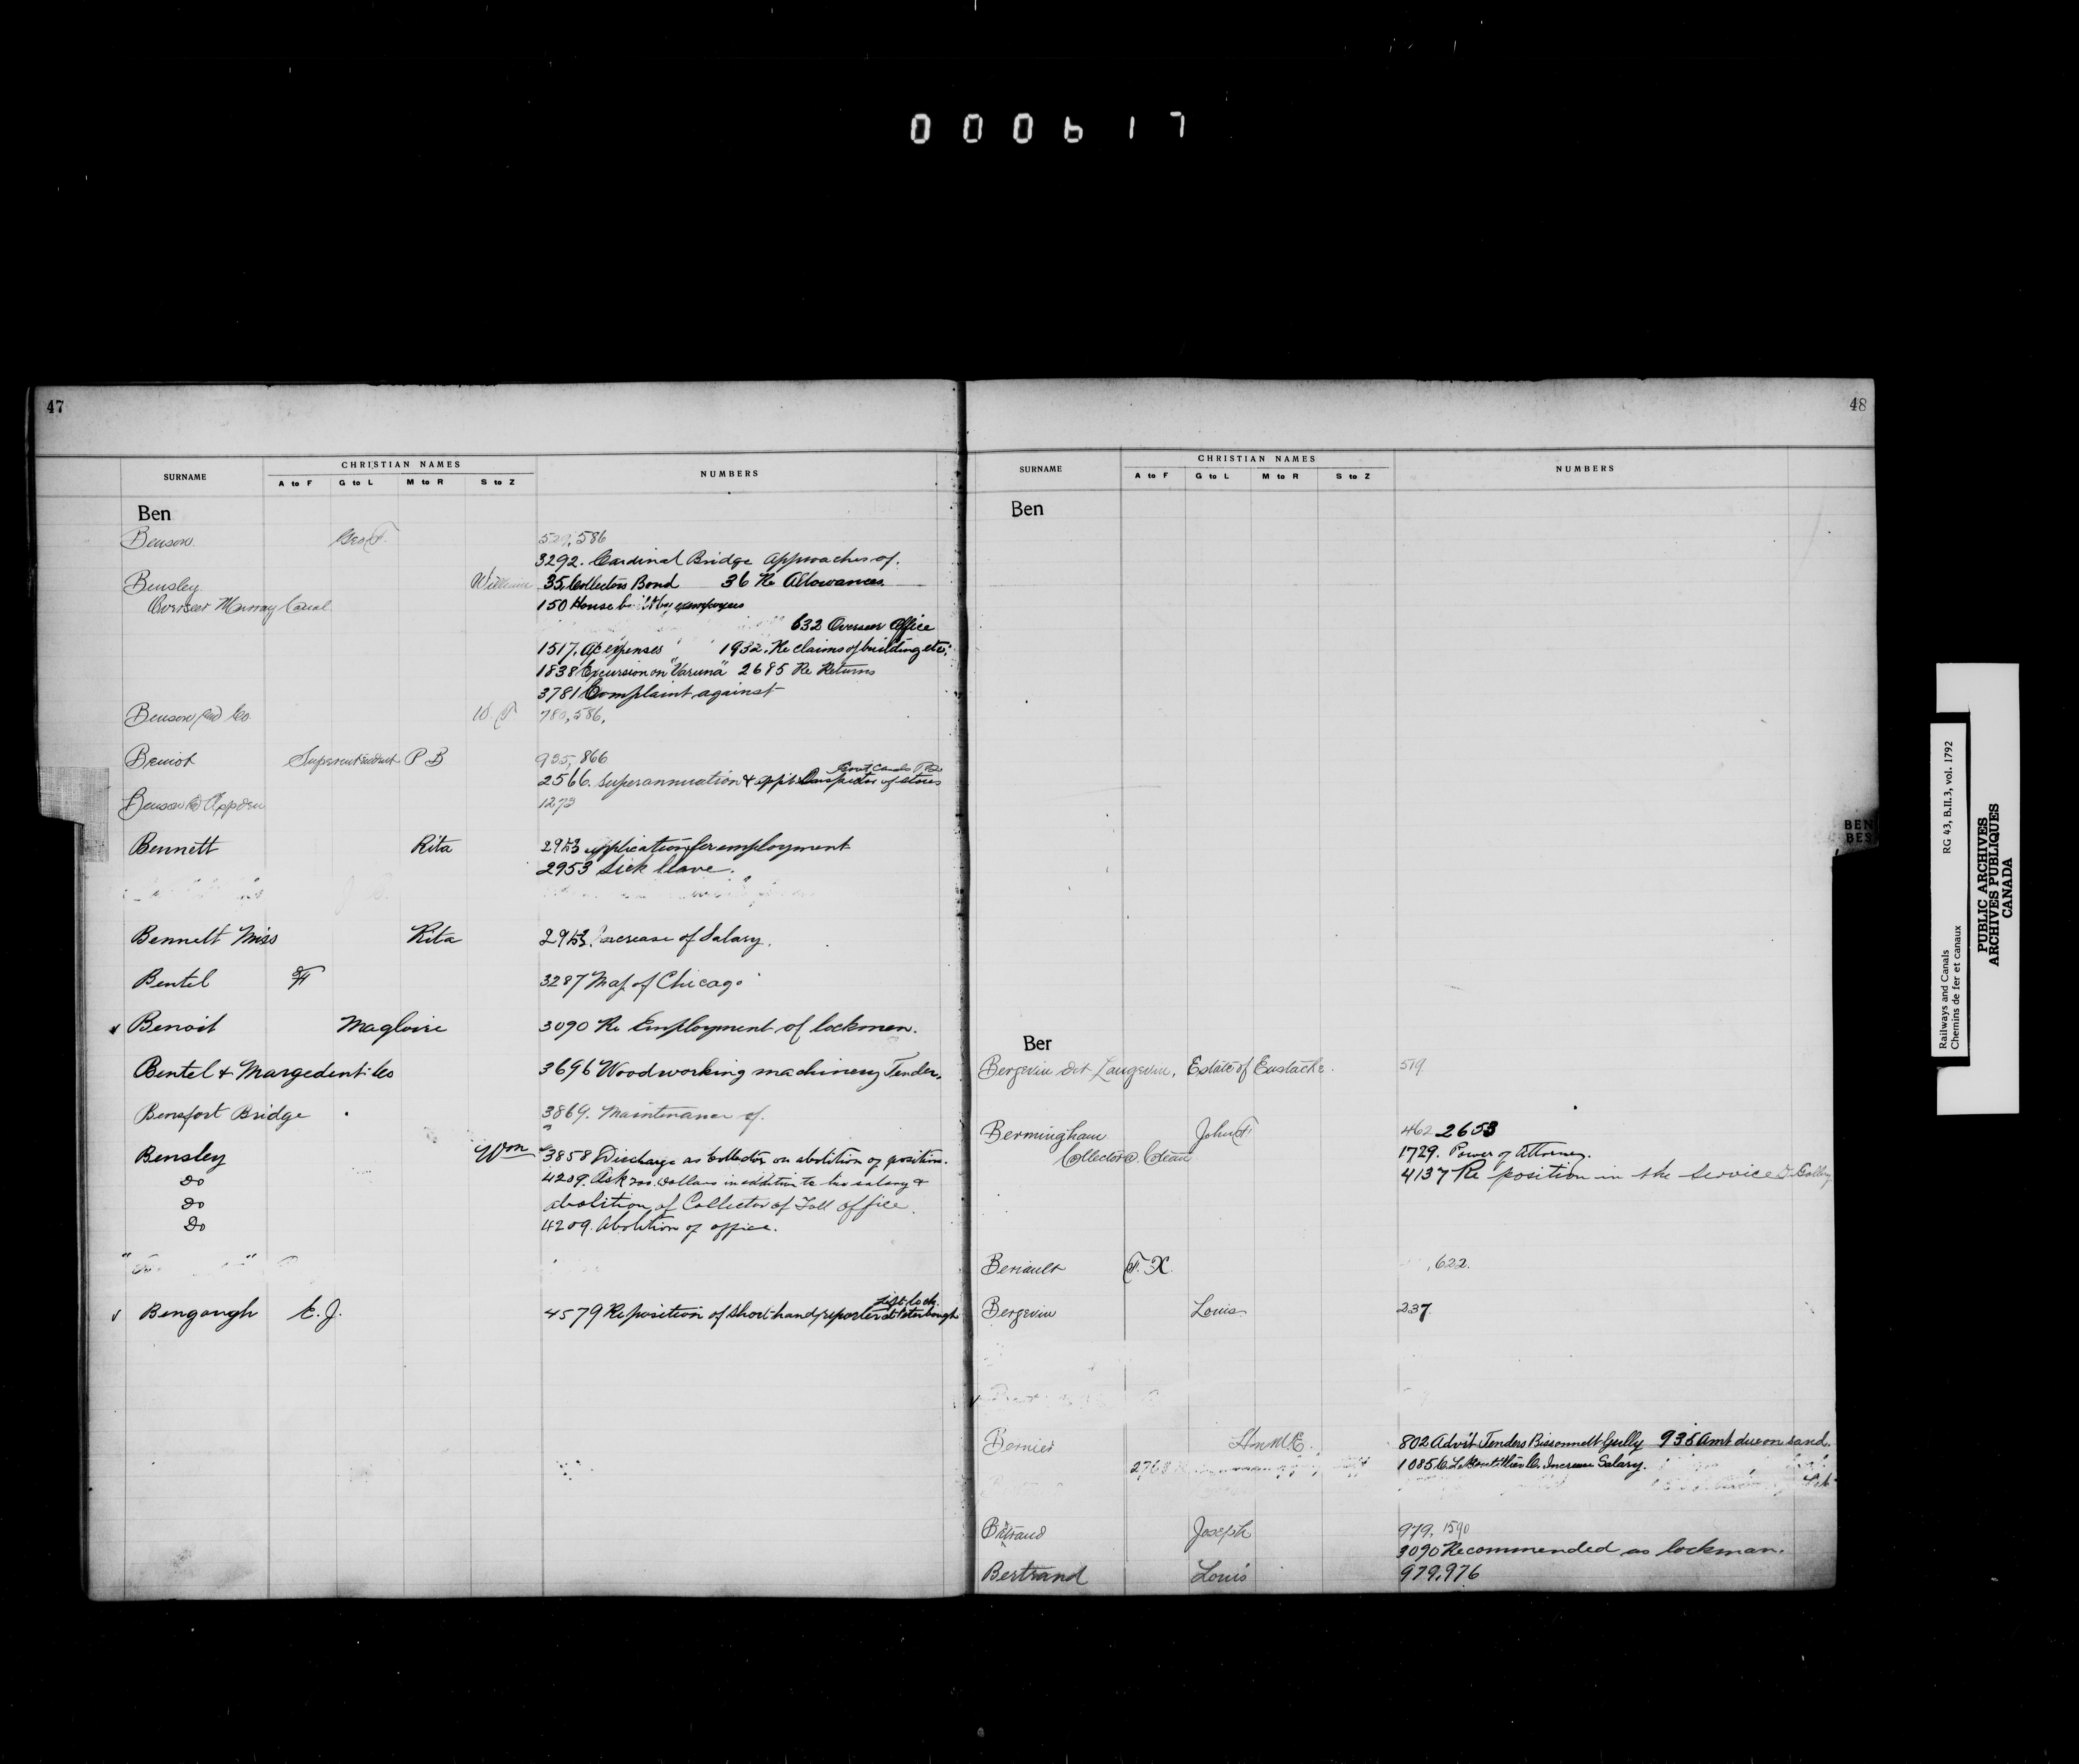 000617
47
SURNAME CHRISTIAN NAMES NUMBERS
A to F G to L M to R S to Z
Ben
Benson Geo F. 586
3292. Cardinal Bridge Approaches of.
Bensley William 35 Collectors Bond 36 Re Allowances
Overseer Murray Canal 150 House built by
632 Overseer Office
1517. expenses 1932. Re claims of building etc.
1838 Excursion on "Varuna" 2685 Re Returns
3781 Complaint against
Benson and Co. 780, 586,
Benoit Superintendent P B 935, 866
2566. Superannuation & Inspector of stores
Benson 1273
Bennett Rita 2953 application for employment
2953 Sick leave.
Bennett Miss Rita 2953. Increase of Salary.
Bentel F 3287 Map of Chicago
Benoit Magloire 3090 Re Employment of lockmen.
Bentel & Margedent Co 3696 Woodworking machinery Tender.
Bensfort Bridge 3869. Maintenance of.
Bensley Wm 3858 Discharge as Collector on abolition of position.
Do 4209. Ask 200. dollars in addition to his salary &
Do abolition of Collector of Toll office.
Do 4209. Abolition of office.
Lift lock
Bengough E. J. 4579 Re position of Short hand reporter at Peterborough
48
SURNAME CHRISTIAN NAMES NUMBERS
A to F G to L M to R S to Z
Ben
BEN
BES
Ber
Bergevin dit Langevin, Estate of Eustache. 519
Bermingham John F 462 2653
Collector @ Coteau 1729. Power of Attorney.
4137 Re position in the Service
Beriault F. X. , 622.
Bergevin Louis 237
Bernier Hon M. E. 802 Advit Tenders Bissonnett Gully 935 Amt due on sand.
2768 1085 Increase Salary.
Bertrand Joseph 979, 1590
3090 Recommended as lockman.
Bertrand Louis 979, 976
Railways and Canals RG 43, B.II.3, vol. 1792
Chemins de fer et canaux
PUBLIC ARCHIVES
ARCHIVES PUBLIQUES
CANADA